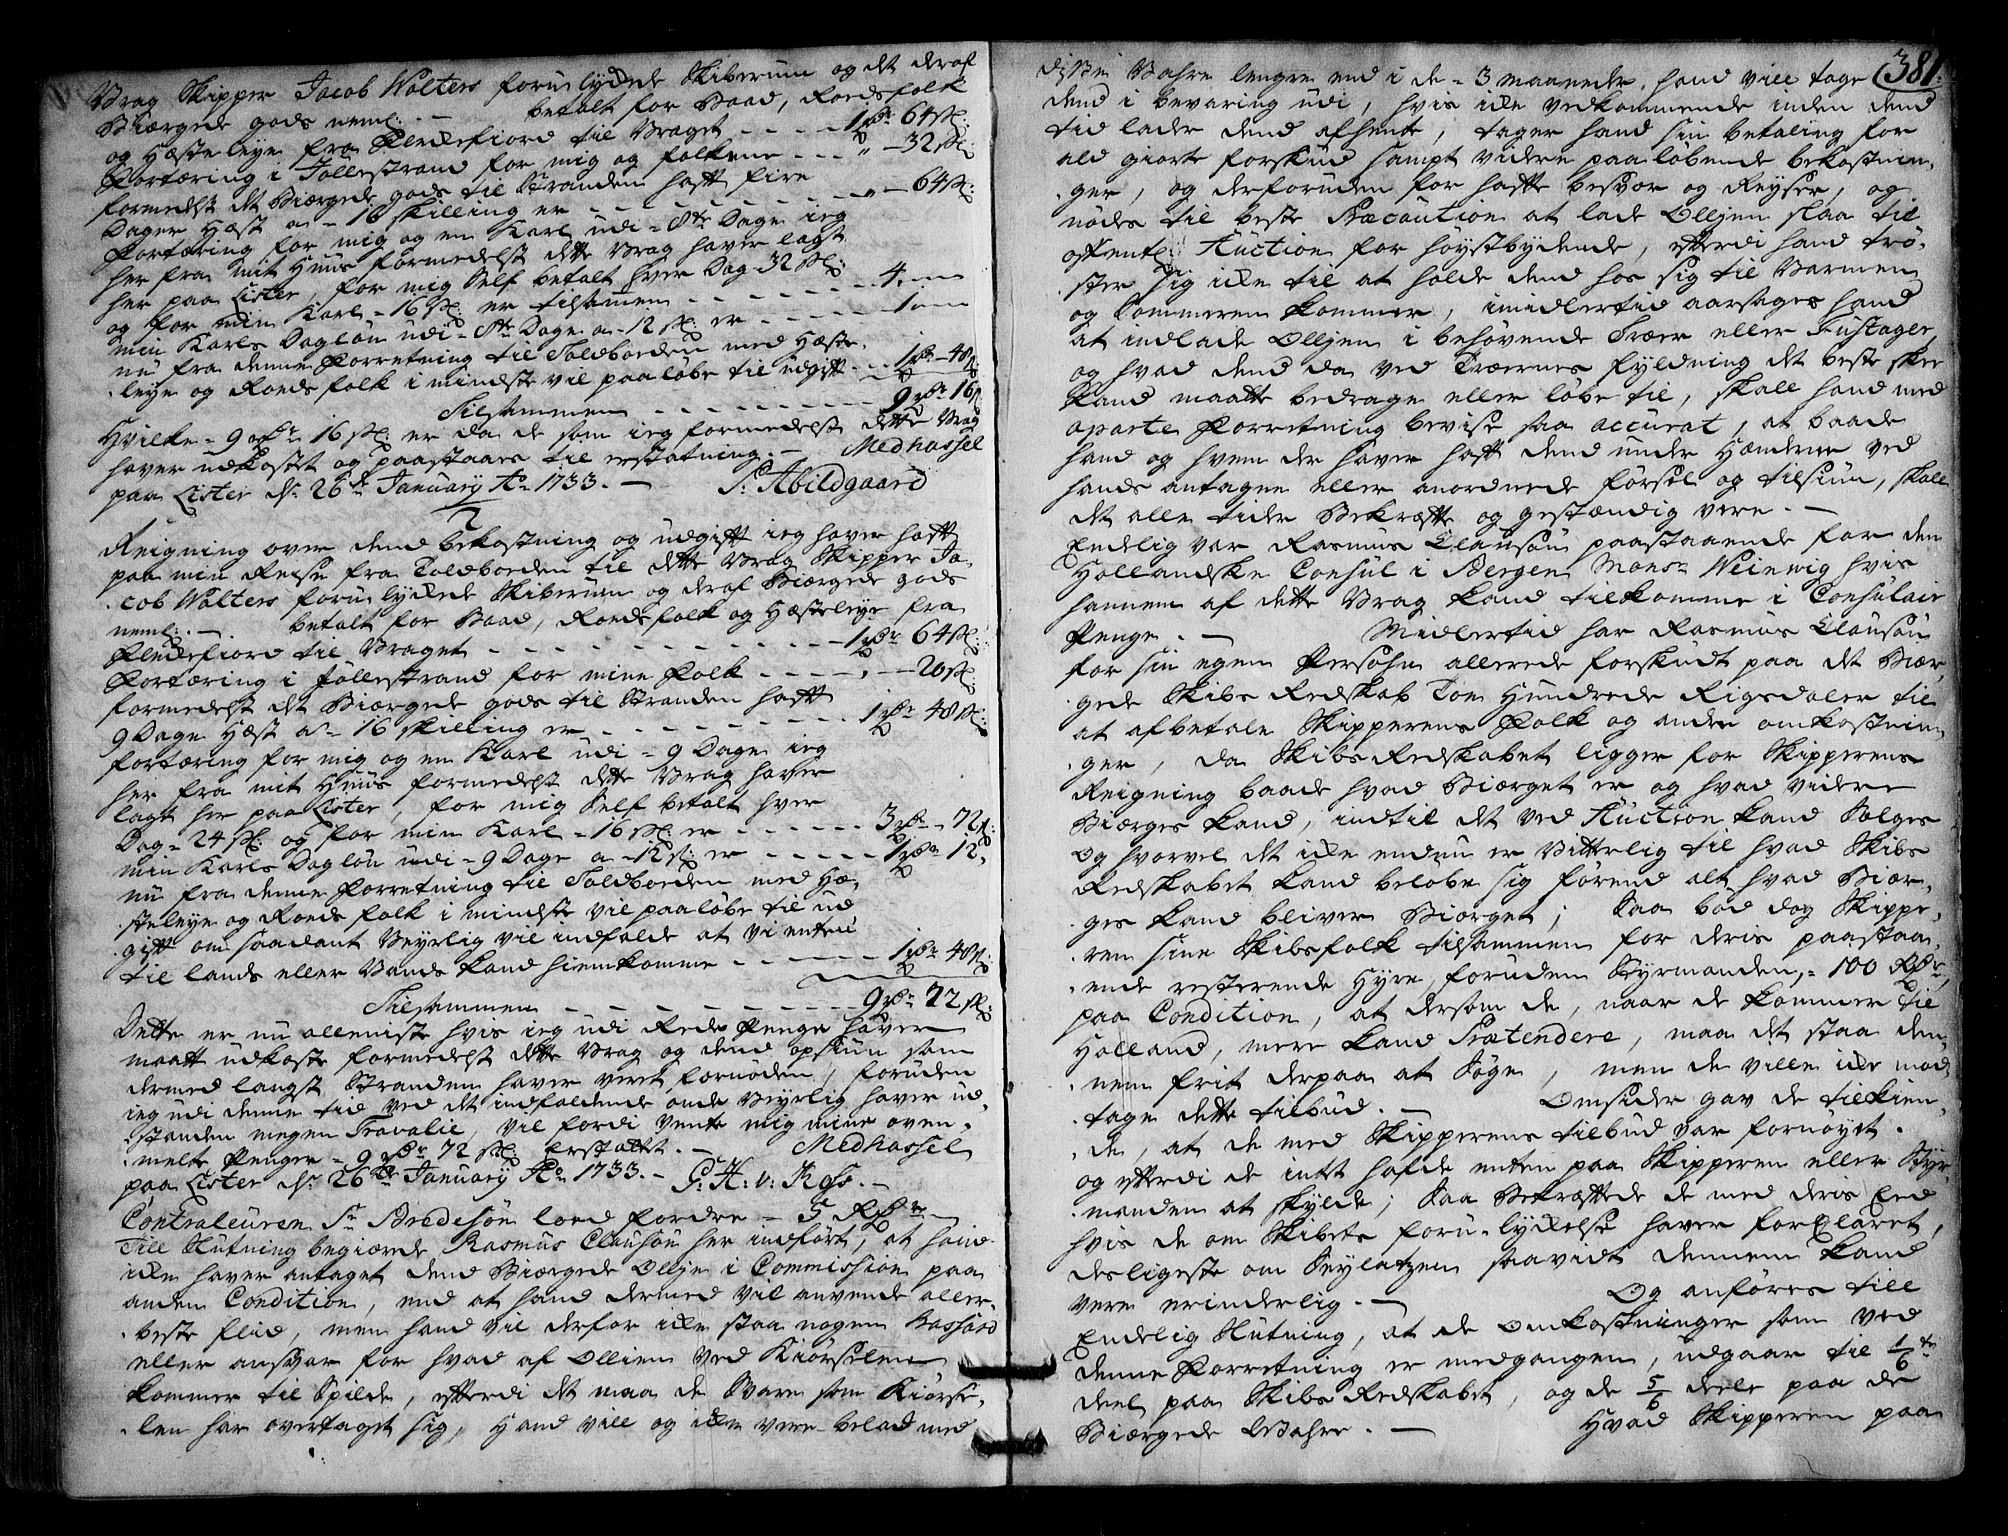 Vrag Skipper Jacob Wolters forulyckede Skiberum og det deraf
Biergede gods neml: — betalt for Baad, Roedsfolk
og Hæsteleye fra Fleckefiord til Vraget - - - - 1 rdr 64 sk:
Fortæring i Jøllestrand for mig og folkene - - - „ - 32 sk:
formedelst det Biergede gods til Stranden hafft fire
Dager Hæst a - 16 skilling er - - - - - - - „ - 64 sk:
Fortæring for mig og en Karl udi - 8te Dage ieg
her fra mit Huus formedelst dette Vrag haver lagt
her paa Lister, for mig Self betalt hver Dag 32 sk:
og for min Karl - 16 sk: er tilsamen - - - - - 4. —
min Karls Dagløn udi - 8te Dage a - 12 sk: er - - - - 1 —
nu fra denne Forretning til Toldboeden med Hæste-
leye og Roeds folk i mindste vil paaløbe til udgift - - 1 rdr - 48 sk
Tilsammen - - - - - - - - - 9 rdr 16 sk
Hvilke - 9 rdr 16 sk: er da de som ieg formedelst dette Vrag
haver udkostet og paastaaes til erstatning. — Medhassel
paa Lister d: 26de January Ao 1733. — S: Abildgaard
2
Reigning over dend bekostning og udgifft ieg haver hafft
paa min Reise fra Toldboeden til dette Vrag Skipper Ja-
cob Wolters foruLyckede Skiberum og deraf Biergede gods
neml: — betalt for Baad, Roedsfolk og Hæsteleye fra
Fleckefiord til Vraget - - - - - - - - - - - 1 rdr 64 sk:
Fortæring i Jøllestrand for mine Folk - - - - . - 20 sk:
formedelst det Biergede gods til Stranden hafft
9 Dage Hæst a - 16 skilling er - - - - - - - - 1 rdr 48 sk:
fortæring for mig og en Karl udi - 9 Dage ieg
her fra mit Huus formedelst dette Vrag haver
lagt her paa Lister, for mig Self betalt hver
Dag - 24 sk: og for min Karl - 16 sk: er - - - - - - 3 rdr - 72 sk:
min Karls Dagløn udi - 9 Dage a - 12 sk: er - - - - - 1 rdr 12.
nu fra denne Forretning til Toldboeden med Hæ-
steleye og Roeds folk i mindste vil paaløbe til ud
gift om saadant Veyrlig vil indfalde at vi enten
til lands eller Vands kand hiemkomme - - - - - - 1 rdr 48 sk:
Tilsammen - - - - - - - - - 9 rdr 72 sk:
Dette er nu alleniste hvis ieg udi Rede Penge haver
maatt udkoste formedelst dette Vrag og dend opsiun som
dermed langst Stranden haver vert fornøden, foruden
ieg udi denne tid ved det indfaldende onde Veyrlig haver ud-
standen megen Travalie, vil fordi vente mig mine oven-
melte Penge - 9 rdr 72 sk: Erstattet. — Medhassel
paa Lister d: 26de January Ao 1733. — G: H: v: Koss. —
Contraleuren Sr Bredesøn loed fordre - 5 Rdr —
Till Slutning begierede Rasmus Clausøn her indført, at hand
icke haver antaget dend Biergede Ollje i Commission paa
anden Condition, end at hand dermed vil anvende aller-
beste flid, men hand vil derfor icke staa nogen Hassard
eller ansvar for hvad af Olljen ved Kiørselen
kommer til Spilde, efterdi det maa de svare som Kiørse-
len har overtaget sig, Hand vill og icke være belad med
381.
disse Vahre lengre end i de - 3 maaneder, hand vill tage
dend i bevaring udi, hvis icke vedkommende inden dend
tid lader dend afhente, tager hand sin betaling for
ald giorte forskud sampt videre paaløbende bekostnin-
ger, og derforuden for hafte besvær og Reyser, og
nødes til beste Præcaution at lade Olljen slaa til
offentl: Auction for høystbydende, efterdi hand trø-
ster sig icke til at holde dend hos sig til Varmen
og Sommeren kommer, imidlertid aarsages hand
at indlade Olljen i behøvende Træer eller Fustager,
og hvad dend da ved Træernes fyldning det beste skee
kand maatte bedrage eller løbe til, skall hand med
aparte Forretning bevise saa accurat, at baade
hand og hvem der haver hafft dend under Hænderne ved
hands antagne eller anordnede førsel og tilsiun, skall
det alle tider Bekræffte og gestændig være. —
Endelig var Rasmus Clausøn paastaaende for den
Hollandske Consul i Bergen Monsr Weinwig hvis
hannem af dette Vrag kand tilkomme i Consulair
Penge. — Midlertid har Rasmus Clausøn
for sin egen Persohn allerede forskudt paa det Bier-
gede Skibs Redskab Toe Hundrede Rigsdaler til
at afbetale Skipperens Folk og andre omkostnin-
ger, da Skibs Redskabet ligger for Skipperens
Reigning baade hvad Bierget er og hvad videre
Bierges kand, indtil det ved Auction kand Sælges
Og hvorvel det icke endnu er Vitterlig til hvad Skibs
Redskabet kand beløbe sig førend alt hvad Bier-
ges kand bliver Bierget; Saa bød dog Skippe-
ren sine Skibsfolk tilsammen for deris paastaa-
ende resterende Hyre, foruden Styrmanden, - 100 Rdr,
paa Condition, at dersom de, naar de kommer til
Holland, mere kand Prætendere, maa det staa den-
nem frit derpaa at Søge, men de ville icke mod
tage dette tilbud. — Omsider gav de tilkien-
de, at de med Skipperens tilbud var fornøyet.
og efterdi de intet hafde enten paa Skipperen eller Styr-
manden at skylde; Saa Bekræftede de med deris Eed
hvis de om Skibets foru-lyckelse haver forklaret,
desligeste om Seylatzen saavidt dennem kand
være erinderlig. — Og anføres till
Endelig Slutning, at de Omkostninger som ved
denne Forretning er medgangen, udgaar til 1/6te
deel paa Skibs Redskabet, og de 5/6 deele paa de
Biergede Wahre. — Hvad Skipperen paa